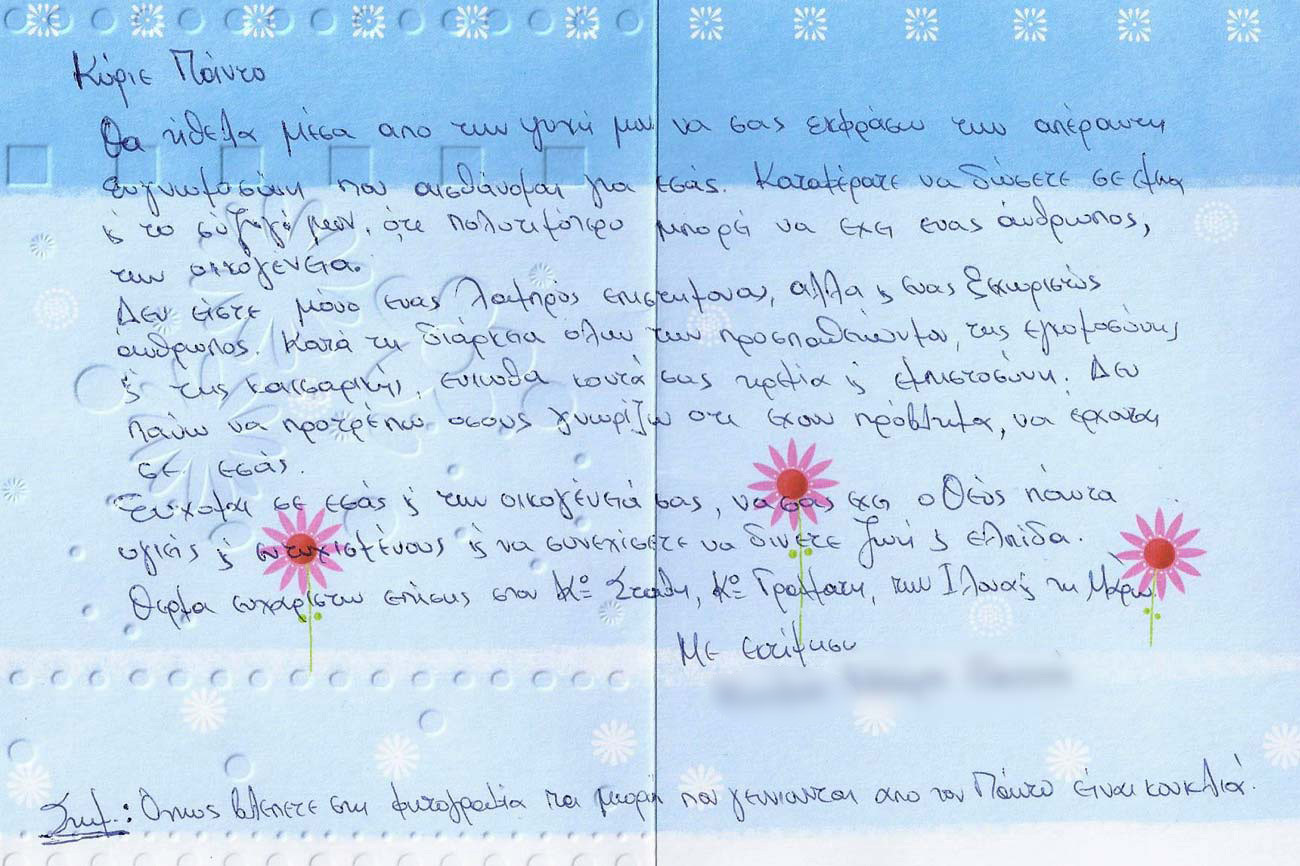 Κύριε Πάντο
Θα ήθελα μέσα απο την ψυχή μου να σας εκφράσω την απέραντη
ευγνωμοσύνη που αισθάνομαι για εσάς. Καταφέρατε να δώσετε σε εμένα
ς το σύζυγό μου, ότι πολυτιμότερο μπορεί να εχει ενας άνθρωπος,
την οικογένεια.
Δεν είστε μόνο ενας λαμπρός επιστήμονας, αλλα ς ενας ξεχωριστός
άνθρωπος. Κατά τη διάρκεια όλων των προσπαθειών μου, της εγκυμοσύνης
ς της καισαρικής, ενιωθα κοντά σας ηρεμία ς εμπιστοσύνη. Δεν
παύω να προτρέπω οσους γνωρίζω οτι εχουν πρόβλημα, να έρχονται
σε εσάς.
Εύχομαι σε εσάς ς την οικογένειά σας, να σας εχει ο Θεός πάντα
υγιείς ς ευτυχισμένους ς να συνεχίσετε να δίνετε ζωή ς ελπίδα.
Θερμα ευχαριστω επίσης στον Κο Στάθη, Κο Γραμματη, την Ιλονα ς τη Μάρω
Με εκτίμηση
Σημ.: Οπως βλεπετε στη φωτογραφία τα μωρά που γεννιουνται απο τον Πάντο είναι κουκλιά.